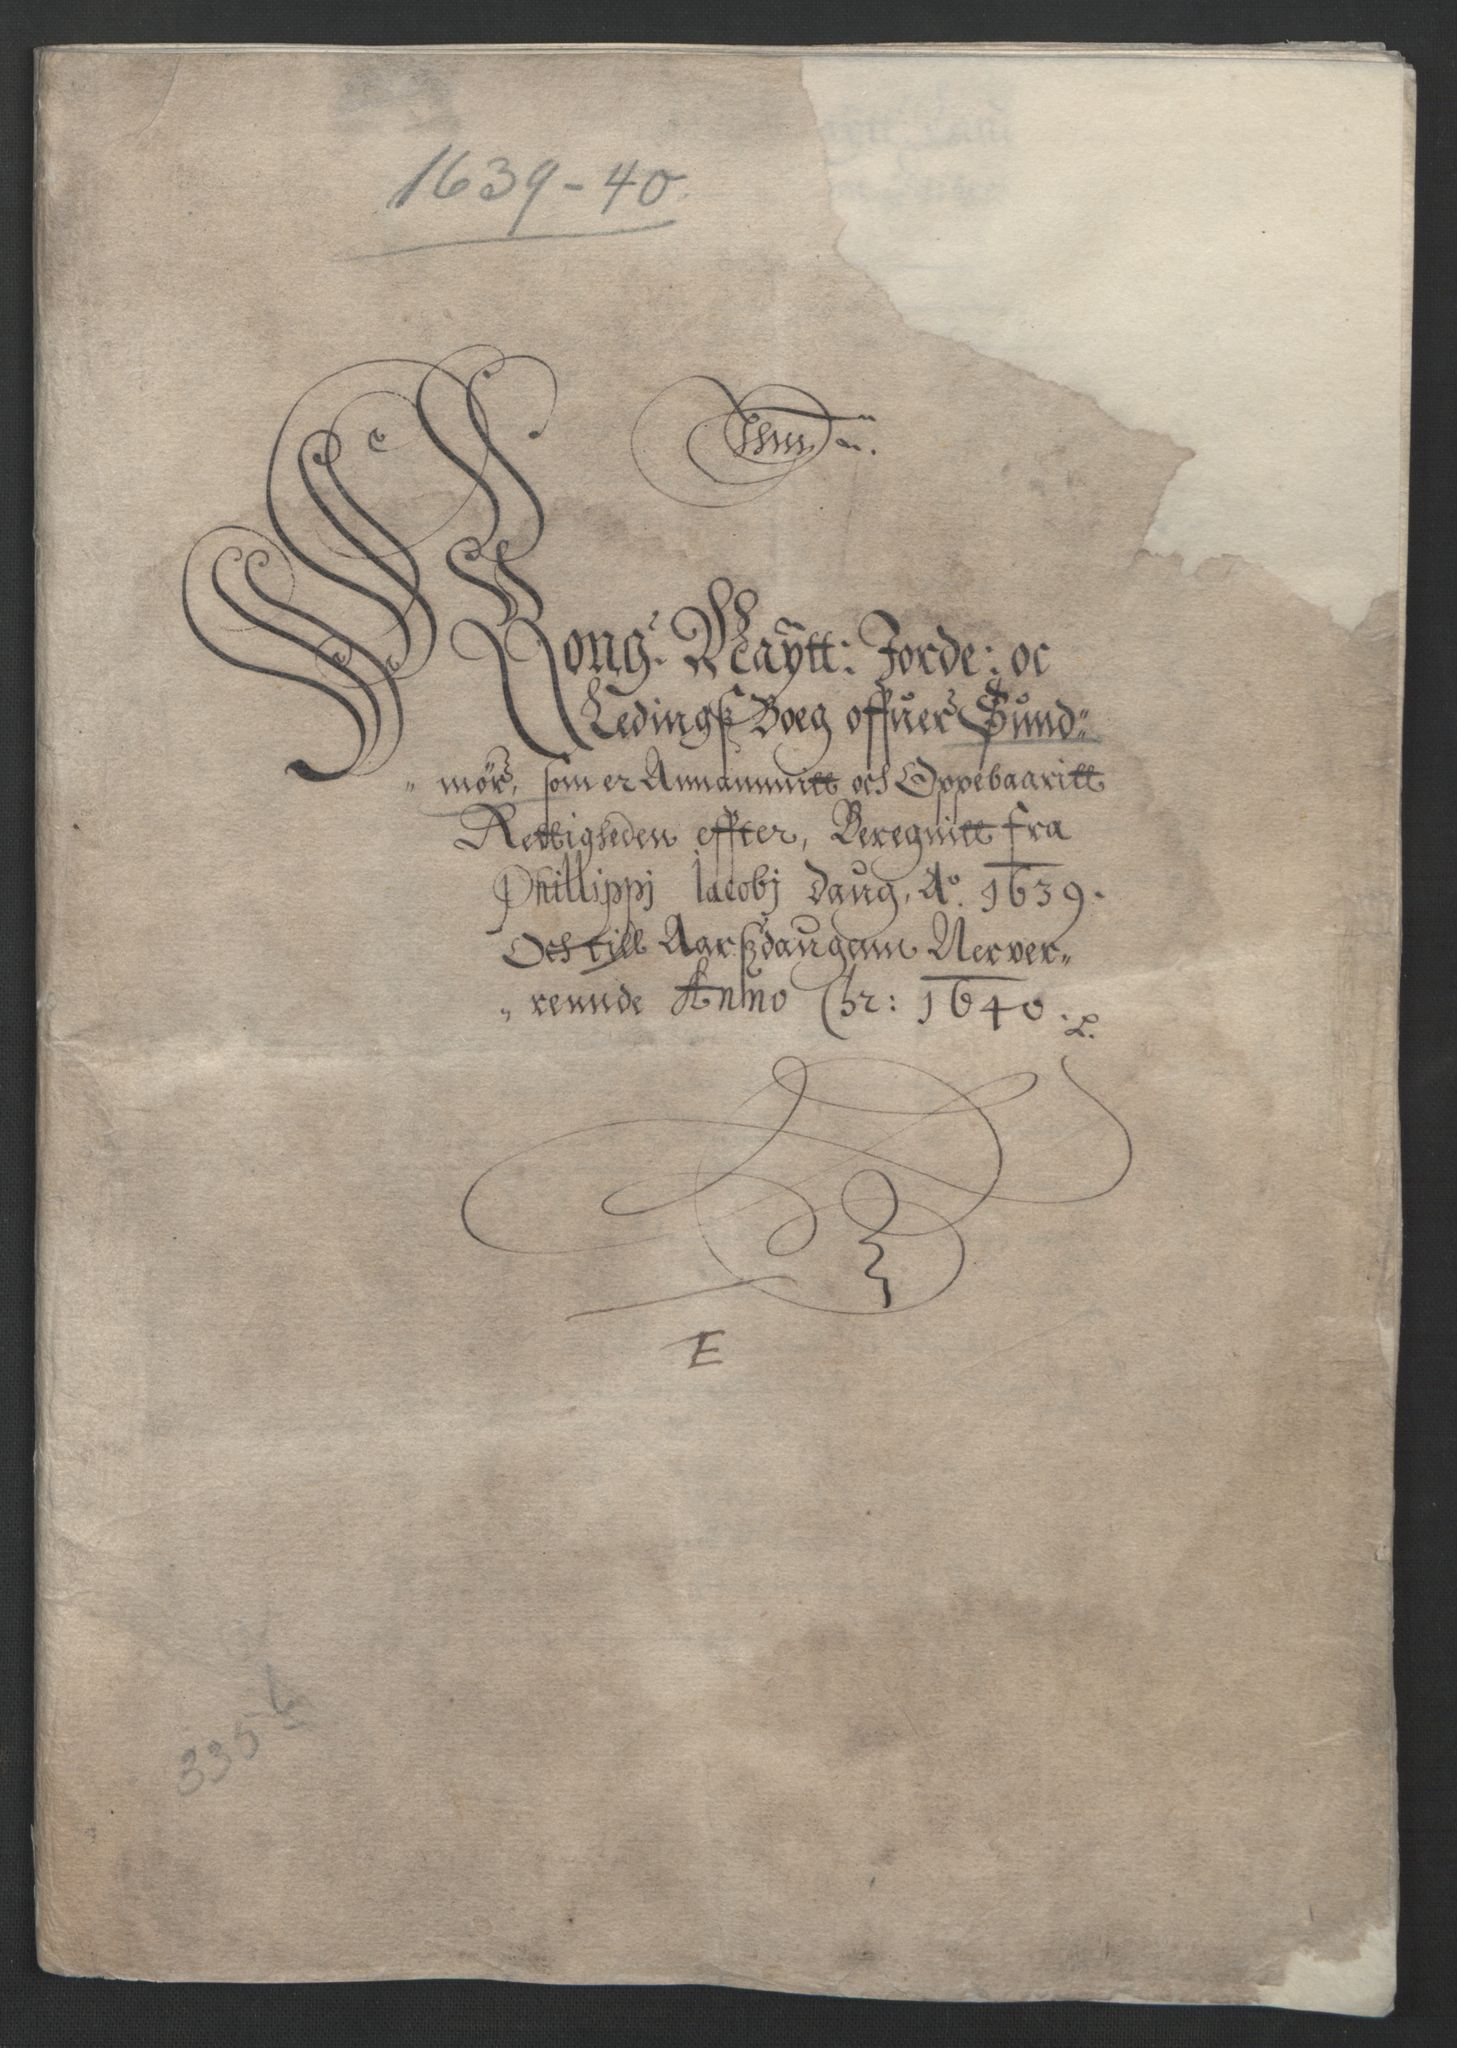 1639-40.
Kong: Maÿtt: Jorde: oc
Ledingß Boeg offuer Sund„
„ mör, som er Annammitt och Oppebaaritt
Rettigheden effter, Beregnitt fra
Phillippj Iacobj daug, A°. 1639.
Och till Aarßdaugenn Nerver„
„ rennde Anno Chr: 1640.
E
335